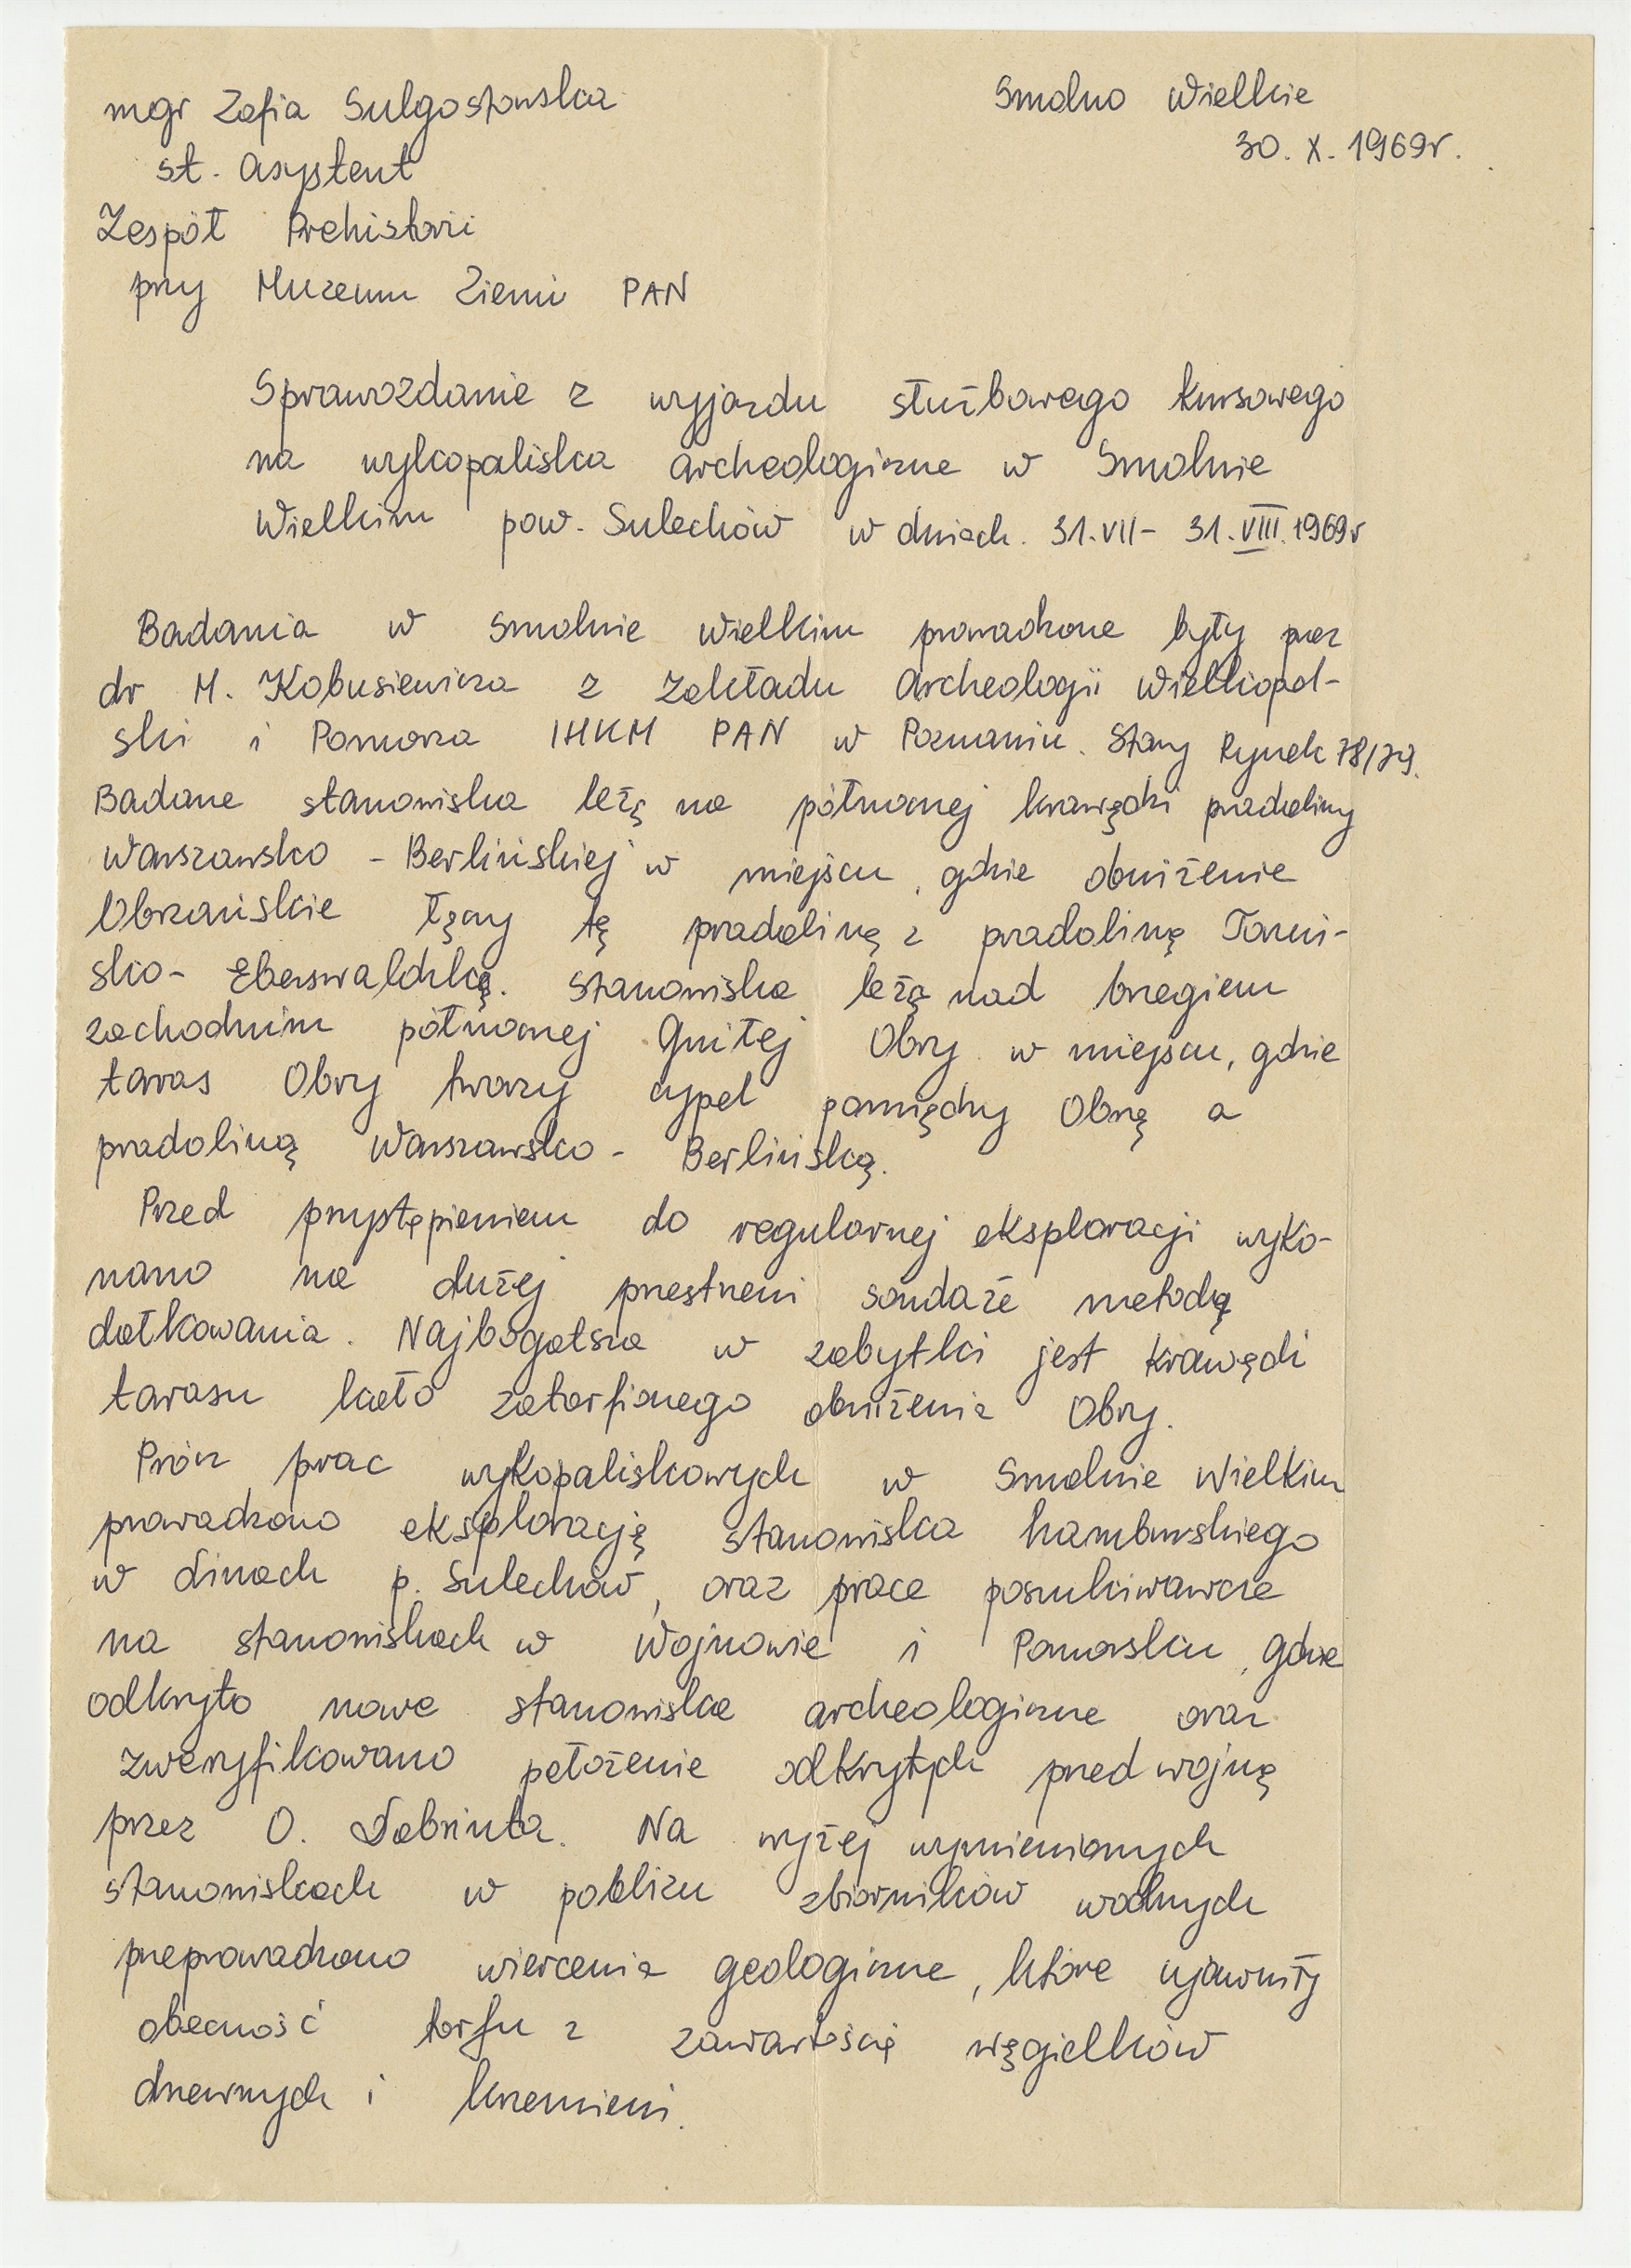 mgr Zofia Sulgostowska
Smolno Wielkie
30. X. 1969r.
st. asystent
Zespół Prehistorii
przy Muzeum Ziemi PAN
Sprawozdanie z wyjazdu służbowego kursowego
na wykopaliska archeologiczne w Smolnie
Wielkim pow. Sulechów w dniach. 31.VII - 31.VIII.1969r
Badania w Smolnie Wielkim prowadzone były przez
dr M. Kobusiewicza z Zakładu Archeologii Wielkopol-
ski i Pomorza IHKM PAN w Poznaniu. Stary Rynek 78/79.
Badane stanowiska leżą na północnej krawędzi pradoliny
Warszawsko - Berlińskiej w miejscu, gdzie obniżenie
Obrzańskie łączy tę pradolinę z pradoliną Toruń-
sko - Eberswaldzką. Stanowiska leżą nad brzegiem
zachodnim północnej Gniłej Obry w miejscu, gdzie
taras Obry tworzy cypel pomiędzy Obrą a
pradoliną Warszawsko - Berlińską.
Przed przystąpieniem do regularnej eksploracji wyko-
nano na dużej przestrzeni sondaże metodą
dołkowania. Najbogatsza w zabytki jest krawędź
tarasu koło zatorfionego obniżenia Obry.
Prócz prac wykopaliskowych w Smolnie Wielkim
prowadzono eksplorację stanowiska hamburskiego
w Linach p. Sulechów, oraz prace poszukiwawcze
na stanowiskach w Wojnowie i Pomorsku, gdzie
odkryto nowe stanowiska archeologiczne oraz
zweryfikowano położenie odkrytych przed wojną
przez O. Dobrinta. Na wyżej wymienionych
stanowiskach w pobliżu zbiorników wodnych
przeprowadzono wiercenia geologiczne, które ujawniły
obecność torfu z zawartością węgielków
drzewnych i krzemieni.